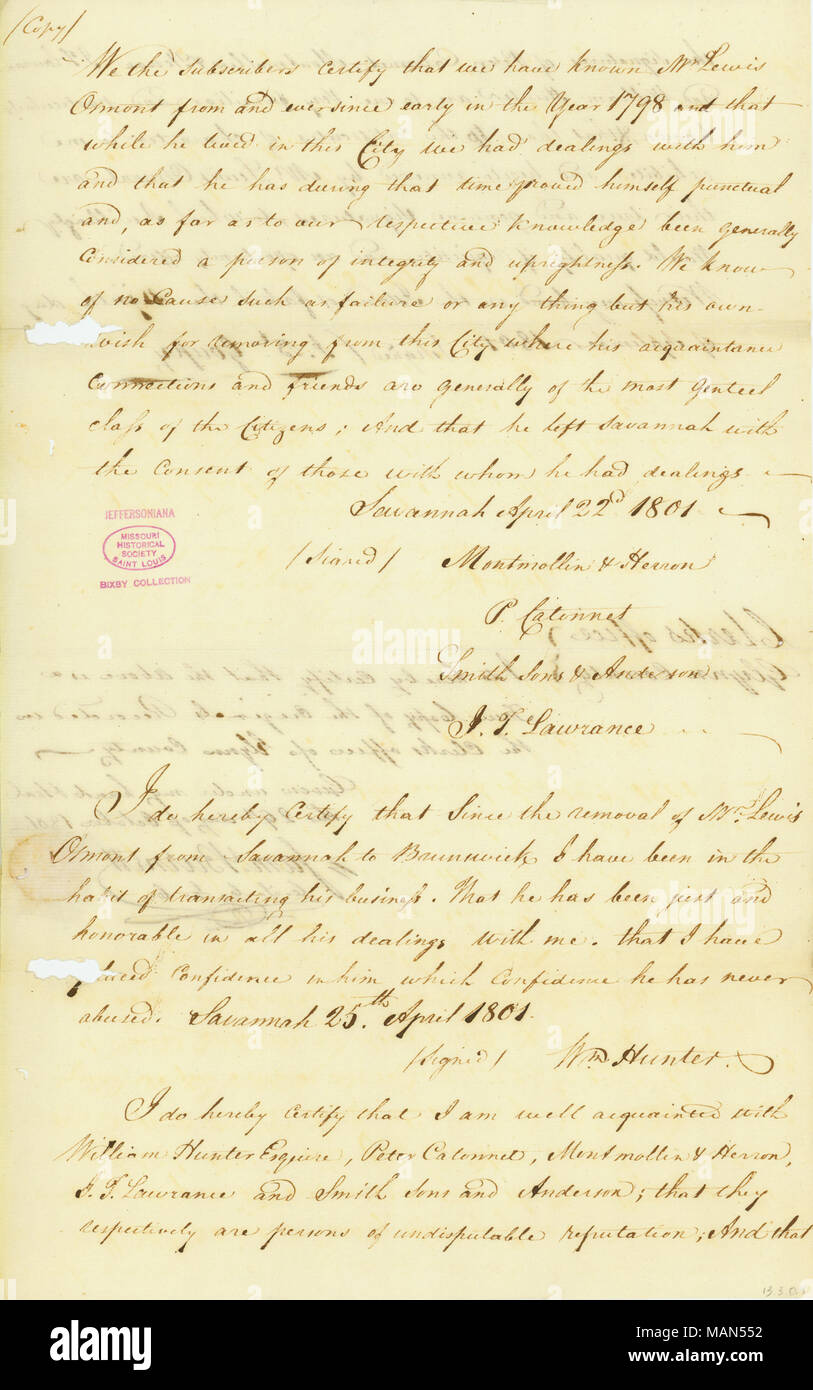 (Copy)
We the Subscribers Certify that we have known Mr. Lewis
Osmont from and ever since early in the Year 1798 and that
while he lived in this City we had dealings with him
and that he has during that time proved himself punctual
and, as far as to our respective knowledge been generally
Considered a person of integrity and uprightness. We know
of no Cause such as failure or any thing but his own
wish for removing from this City where his acquaintance
Connections and friends are generally of the most Genteel
class of the Citizens; And that he left Savannah with
the Consent of those with whom he had dealings
Savannah April 22d 1801
JEFFERSONIANA
MISSOURI
HISTORICAL
SOCIETY
SAINT LOUIS
BIXBY COLLECTION
(Signed) Montmollin & Herron
P. Catonnet
Smith Sons & Anderson
J. T. Lawrance
I do hereby Certify that Since the removal of Mr. Lewis
Osmont from Savannah to Brunswick, I have been in the
habit of transacting his business. That he has been just and
honorable in all his dealings with me. that I have
placed Confidence in him which Confidence he has never
abused. Savannah 25th. April 1801.
(Signed) Wm Hunter.
I do hereby Certify that I am well acquainted with
William Hunter Esquire, Peter Catonnet, Montmollin & Herron,
J. T. Lawrance and Smith Sons and Anderson; that they
respectively are persons of undisputable reputation; And that
alamy
Image ID: MAN552
www.alamy.com